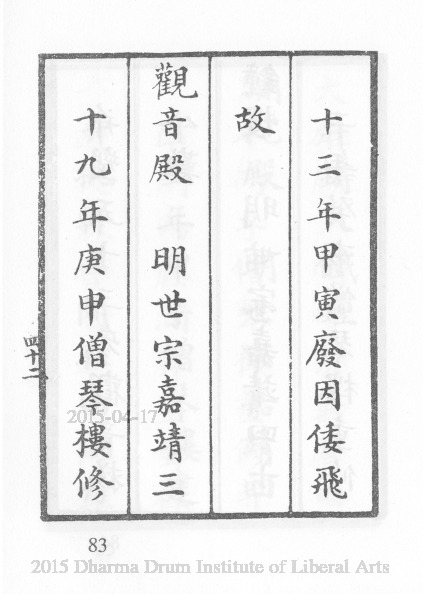 十三年甲寅廢因倭飛
故
觀音殿 明世宗嘉靖三
十九年庚申僧琴樓修
四十二
2015-04-17
83
2015 Dharma Drum Institute of Liberal Arts